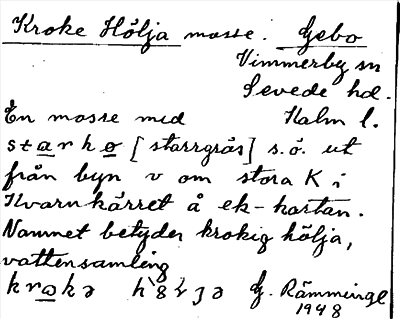 Kroke Hölja mosse. Gebo
Vimmerby sn
Sevede hd.
En mosse med Kalm l.
starkø [starrgräs] s.ö. ut
från byn v om stora K i
Kvarnkärret å ek-kartan.
Namnet betyder krokig hölja,
vattensamling
krokə
G. Rämminge
1948